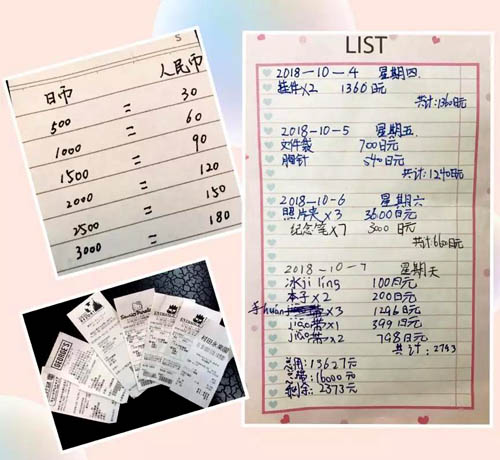 日币 人民币
500 = 30
1000 = 60
1500 = 90
2000 = 120
2500 = 150
3000 = 180
LIST
2018-10-4 星期四
挂件×2 1360日元
共计:1360日元
2018-10-5 星期五
文件袋 700日元
胸针 540日元
共计:1240日元
2018-10-6 星期六
照片夹×3 3600日元
纪念笔×7 3000日元
共计:6600日元
2018-10-7 星期天
冰jiling 100日元
本子×2 200日元
手huan ×3 1296日元
jiao带×1 399日元
jiao带×2 798日元
共计:2793
用:13627元
带:16000元
剩余:2373元